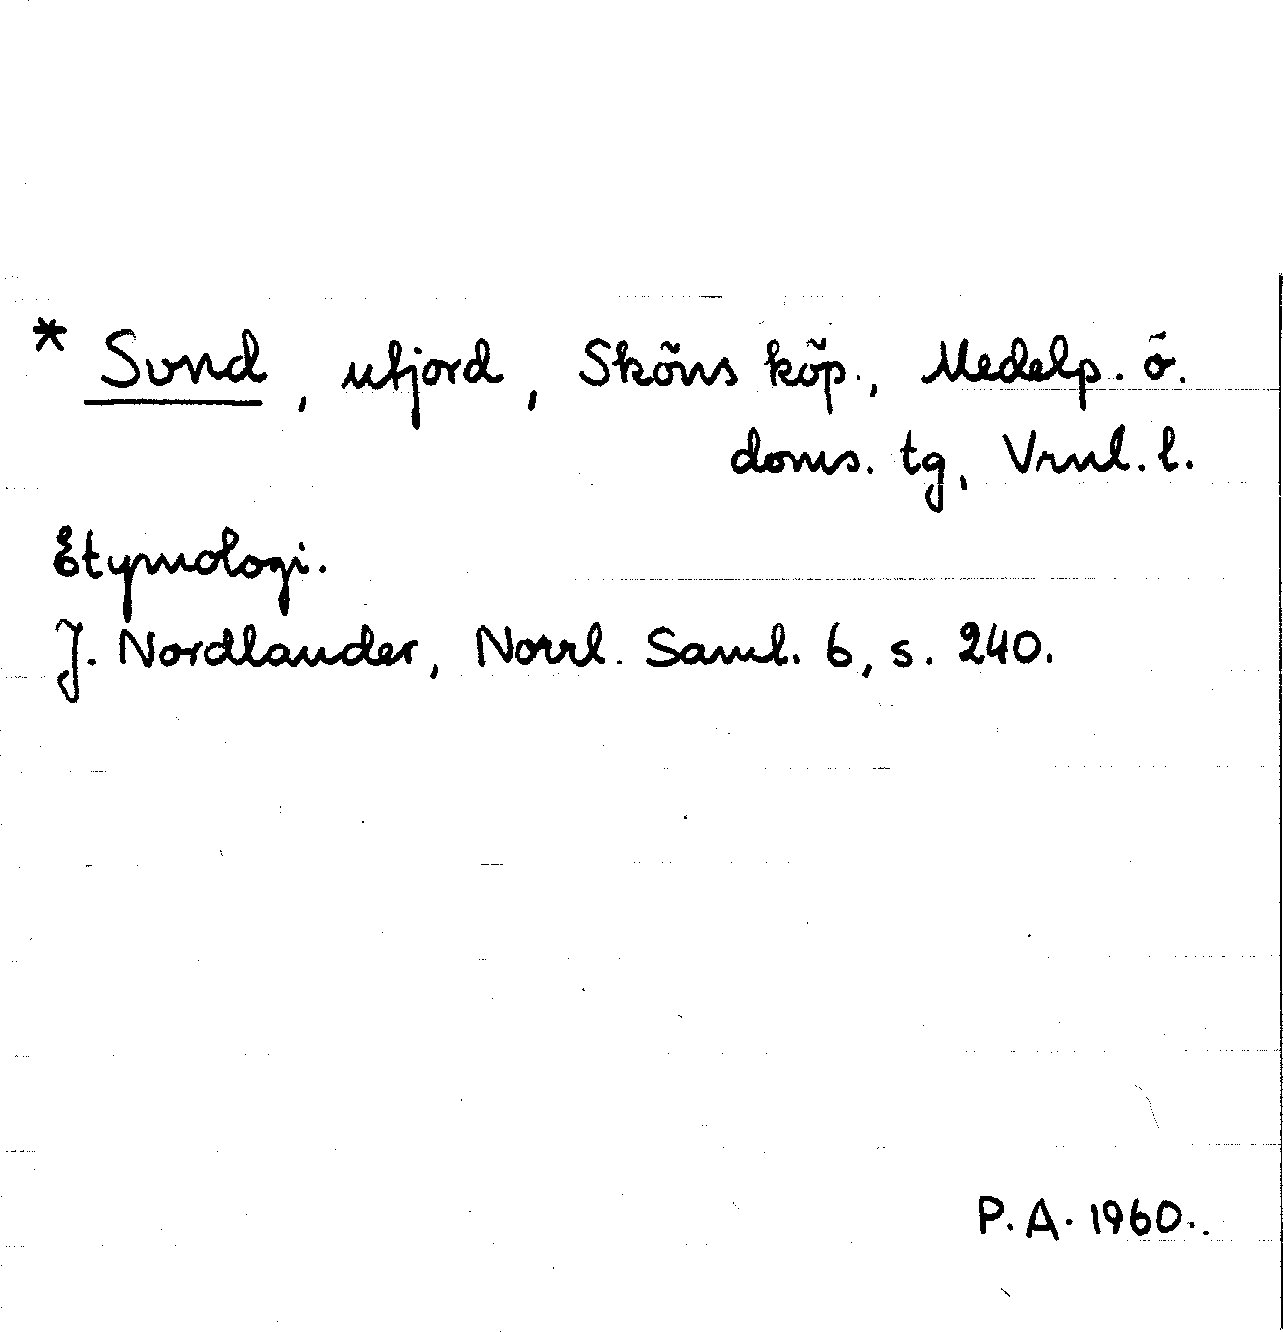 * Sund, ufjord, Sköns köp., Medelp. ö.
doms. tg, Vrnl. l.
Etymologi.
J. Nordlander, Norrl. Saml. 6, s. 240.
P. A. 1960.